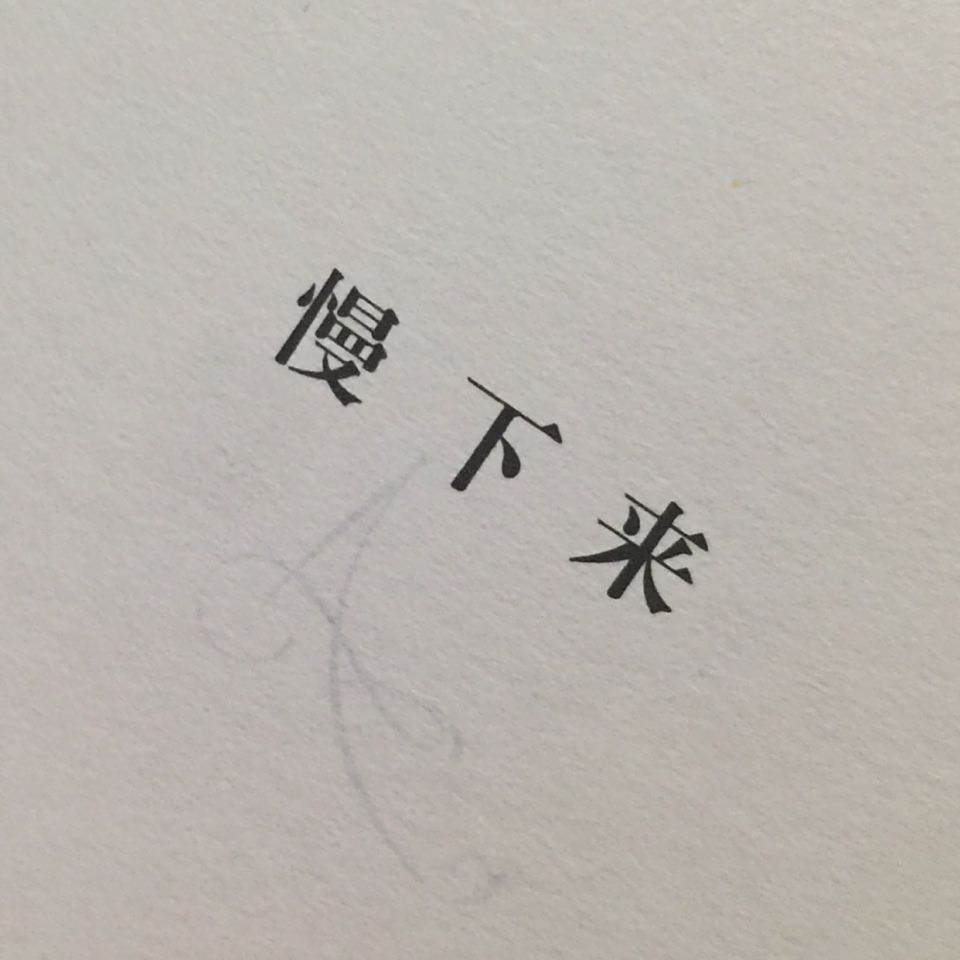 慢下来